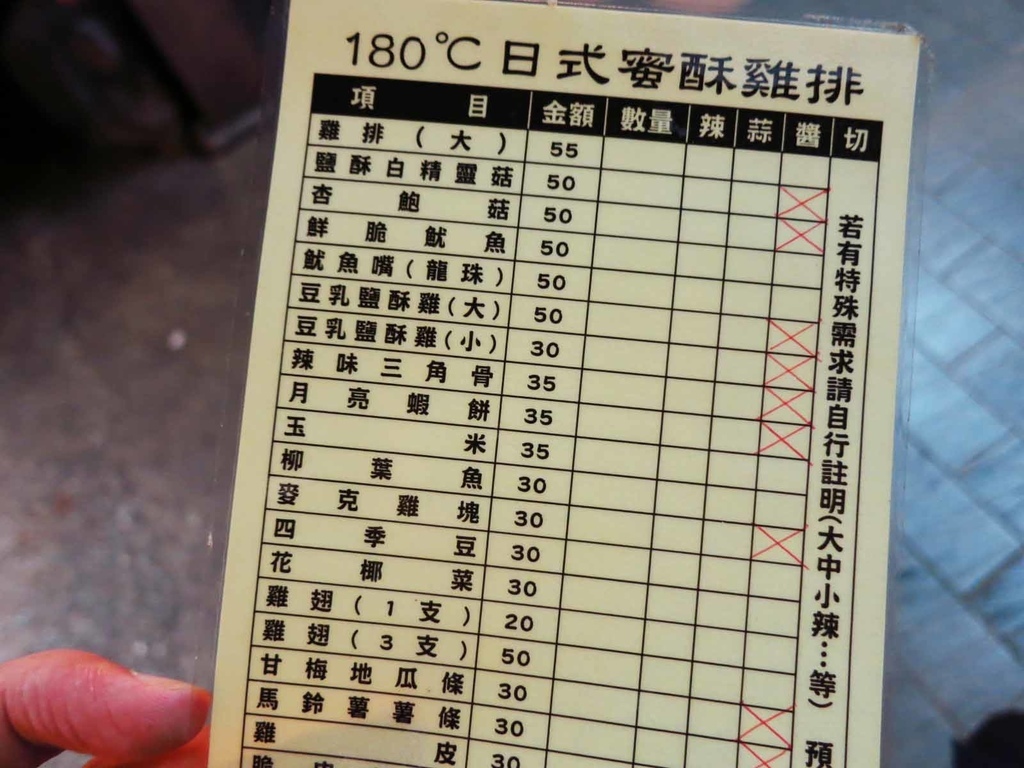 180℃日式蜜酥雞排
項目 金額 數量 辣 蒜 醬 切
雞排(大) 55
鹽酥白精靈菇 50
杏鮑菇 50
鮮脆魷魚 50
魷魚嘴(龍珠) 50
豆乳鹽酥雞(大) 50
豆乳鹽酥雞(小) 30
辣味三角骨 35
月亮蝦餅 35
玉米 35
柳葉魚 30
麥克雞塊 30
四季豆 30
花椰菜 30
雞翅(1支) 20
雞翅(3支) 50
甘梅地瓜條 30
馬鈴薯薯條 30
雞皮 30
脆皮
若有特殊需求請自行註明(大中小辣…等) 預